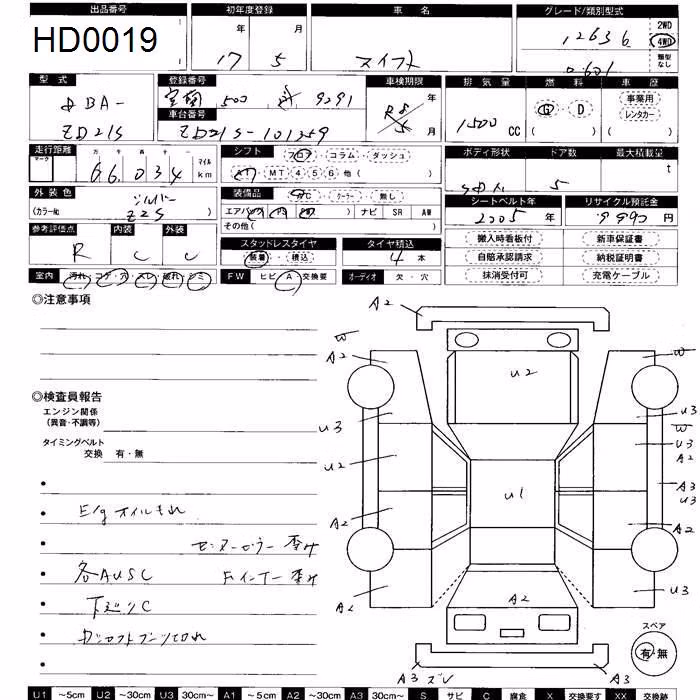 出品番号 初年度登録 車名 グレード/類別型式
HD0019 年 月 2WD
17 5 スイフト 12636 4WD
0601 類型なし
型式 登録番号 車検期限 排気量 燃料 車歴
DBA- 室蘭 500 9291 R8 年 事業用
車台番号 G・D レンタカー
ZD21S ZD21S-101359 5 月 1500 CC ( ) ( )
走行距離 シフト フロア・コラム・ダッシュ ボディ形状 ドア数 最大積載量
マーク 万 千 百 十 マイル
66,034 km AT・MT 4 5 6 他( ) 5 t
外装色 シルバー 装備品 AC・クーラー・無し シートベルト年 リサイクル預託金
(カラーNo. Z2S ) エアバック PS PW ナビ SR AW 2005 年 9990 円
参考評価点 内装 外装 その他( )
R C C スタッドレスタイヤ タイヤ積込 搬入時看板付 新車保証書
装着・積込 4 本 自賠承認請求 納税証明書
室内 汚れ・コゲ・穴・スレ・破れ・シミ FW ヒビ・A・交換要 オーディオ 欠・穴 抹消受付可 充電ケーブル
◎注意事項
◎検査員報告
エンジン関係
(異音・不調等)
タイミングベルト
交換 有・無
• E/gオイルもれ
センターピラー歪み
• 各AUSC Fインナー歪み
• 下廻りC
• ドラシャフトブーツ切れ
A2
W W
A2 A2
U2
U3 U3
W
U3
U2 A2
U1
A3
U3
A2 A2
A2 A2 U3
スペア
有・無
A3 ズレ A3
U1 ～5cm U2 ～30cm U3 30cm～ A1 ～5cm A2 ～30cm A3 30cm～ S サビ C 腐食 X 交換要す XX 交換跡